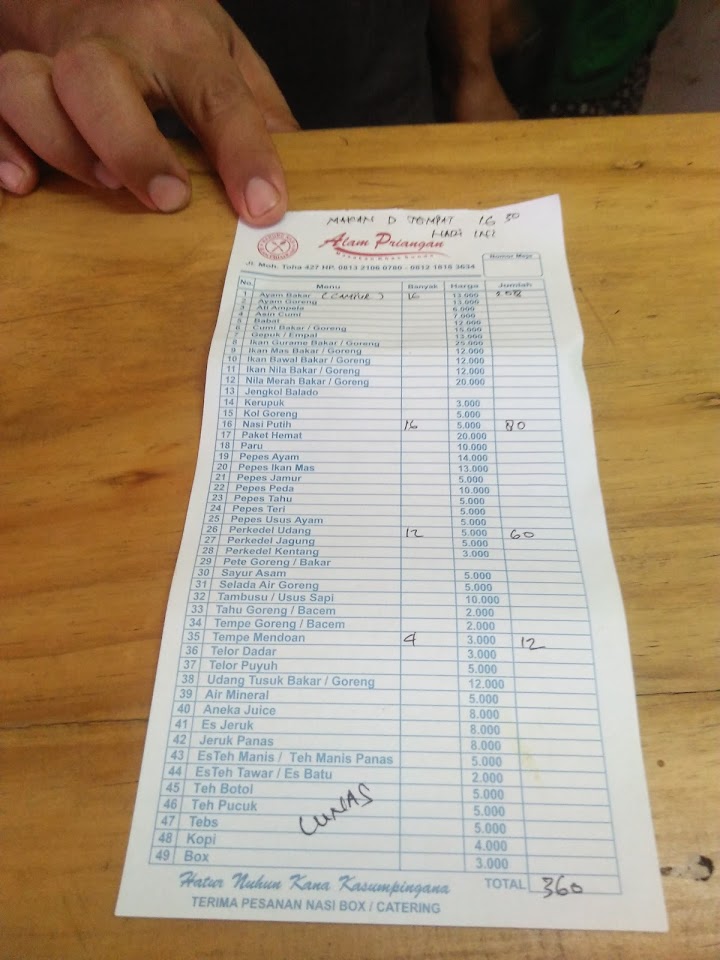 MAKAN D TEMPAT 16 30
HADI INI
Alam Priangan
Jl. Moh. Toha 427 HP. 0813 2106 0780 - 0812 1818 3634
Nomor Meja
No. Menu Banyak Harga Jumlah
1 Ayam Bakar (CAMPUR) 16 13.000 208
2 Ayam Goreng 13.000
3 Ati Ampela 6.000
4 Asin Cumi 7.000
5 Babat 12.000
6 Cumi Bakar / Goreng 15.000
7 Gepuk / Empal 13.000
8 Ikan Gurame Bakar / Goreng 25.000
9 Ikan Mas Bakar / Goreng 12.000
10 Ikan Bawal Bakar / Goreng 12.000
11 Ikan Nila Bakar / Goreng 12.000
12 Nila Merah Bakar / Goreng 20.000
13 Jengkol Balado
14 Kerupuk 3.000
15 Kol Goreng 5.000
16 Nasi Putih 16 5.000 80
17 Paket Hemat 20.000
18 Paru 10.000
19 Pepes Ayam 14.000
20 Pepes Ikan Mas 13.000
21 Pepes Jamur 5.000
22 Pepes Peda 10.000
23 Pepes Tahu 5.000
24 Pepes Teri 5.000
25 Pepes Usus Ayam 5.000
26 Perkedel Udang 12 5.000 60
27 Perkedel Jagung 5.000
28 Perkedel Kentang 3.000
29 Pete Goreng / Bakar
30 Sayur Asam 5.000
31 Selada Air Goreng 5.000
32 Tambusu / Usus Sapi 10.000
33 Tahu Goreng / Bacem 2.000
34 Tempe Goreng / Bacem 2.000
35 Tempe Mendoan 4 3.000 12
36 Telor Dadar 3.000
37 Telor Puyuh 5.000
38 Udang Tusuk Bakar / Goreng 12.000
39 Air Mineral 5.000
40 Aneka Juice 8.000
41 Es Jeruk 8.000
42 Jeruk Panas 8.000
43 EsTeh Manis / Teh Manis Panas 5.000
44 EsTeh Tawar / Es Batu 2.000
45 Teh Botol 5.000
46 Teh Pucuk 5.000
47 Tebs 5.000
48 Kopi 4.000
49 Box 3.000
LUNAS
Hatur Nuhun Kana Kasumpingana TOTAL 360
TERIMA PESANAN NASI BOX / CATERING